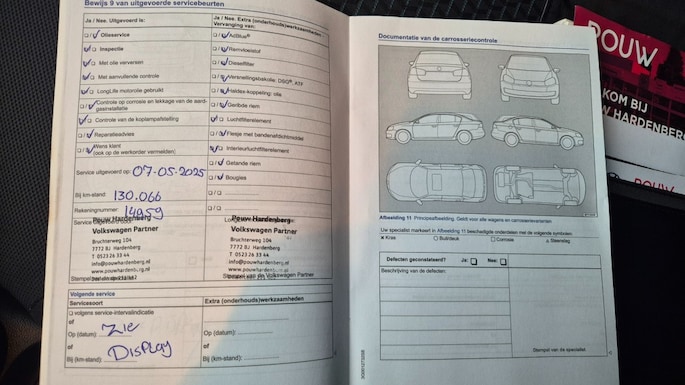 Bewijs 9 van uitgevoerde servicebeurten
Ja / Nee. Uitgevoerd is:
Olieservice
Inspectie
Met olie verversen
Met aanvullende controle
LongLife motorolie gebruikt
Controle op corrosie en lekkage van de aard-
gasinstallatie
Controle van de koplampafstelling
Reparatieadvies
Wens klant
(ook op de werkorder vermelden)
Service uitgevoerd op: 07-05-2025
Bij km-stand: 130.066
Rekeningnummer: 14959
Pouw Hardenberg
Volkswagen Partner
Bruchterweg 104
7772 BJ Hardenberg
T 0523 26 33 44
info@pouwhardenberg.nl
Ja / Nee. Extra (onderhouds)werkzaamheden -
Vervanging van:
AdBlue®
Remvloeistof
Dieselfilter
Versnellingsbakolie: DSG®, ATF
Haldex-koppeling: olie
Geribde riem
Luchtfilterelement
Flesje met bandenafdichtmiddel
Interieurluchtfilterelement
Getande riem
Bougies
Pouw Hardenberg
Volkswagen Partner
Bruchterweg 104
7772 BJ Hardenberg
T 0523 26 33 44
info@pouwhardenberg.nl
Volgende service
Servicesoort
volgens service-intervalindicatie
of
Op (datum): Zie
of
Bij (km-stand): DISPLAY
Extra (onderhouds)werkzaamheden
of
Op (datum):
of
Bij (km-stand):
Documentatie van de carrosseriecontrole
Afbeelding 11 Principeafbeelding. Geldt voor alle wagens en carrosserievarianten
Uw specialist markeert in Afbeelding 11 beschadigde onderdelen met de volgende symbolen:
× Kras
Buil/deuk
Corrosie
Steenslag
Defecten geconstateerd? Ja: Nee:
Beschrijving van de defecten:
Stempel van de specialist.
POUW
KOM BIJ
HARDENBERG
POUW